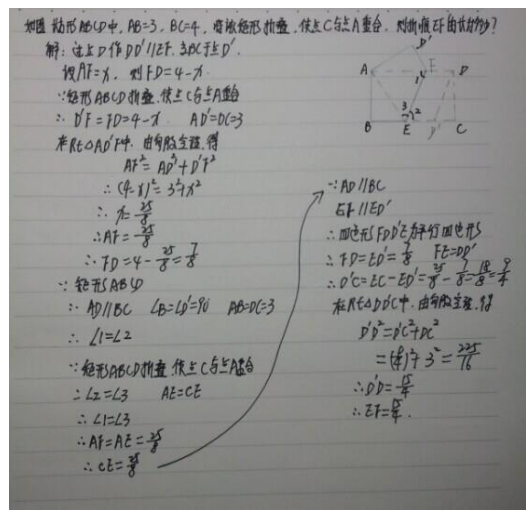 如图 矩形ABCD中, AB=3, BC=4, 将该矩形折叠, 使点C与点A重合, 则折痕EF的长为多少?
解: 过点D作DD'∥EF, 交BC于点D'.
设AF=x, 则FD=4-x.
∵矩形ABCD折叠, 使点C与点A重合
∴D'F=FD=4-x AD'=DC=3
在Rt△AD'F中, 由勾股定理, 得
AF²=AD'²+D'F²
∴(4-x)²=3²+x²
∴x=25/8
∴AF=25/8
∴FD=4-25/8=7/8
∵矩形ABCD
∴AD∥BC ∠B=∠D'=90 AB=DC=3
∴∠1=∠2
∵矩形ABCD折叠, 使点C与点A重合
∴∠2=∠3 AE=CE
∴∠1=∠3
∴AF=AE=25/8
∴CE=25/8
D'
A
F
D
1
3
2
B
E
D'
C
∵AD∥BC
EF∥ED'
∴四边形FDD'E为平行四边形
∴FD=ED'=7/8 FE=DD'
∴D'C=EC-ED'=25/8-7/8=18/8=9/4
在Rt△DD'C中, 由勾股定理, 得
D'D²=D'C²+DC²
=(9/4)²+3²=225/16
∴D'D=15/4
∴EF=15/4.